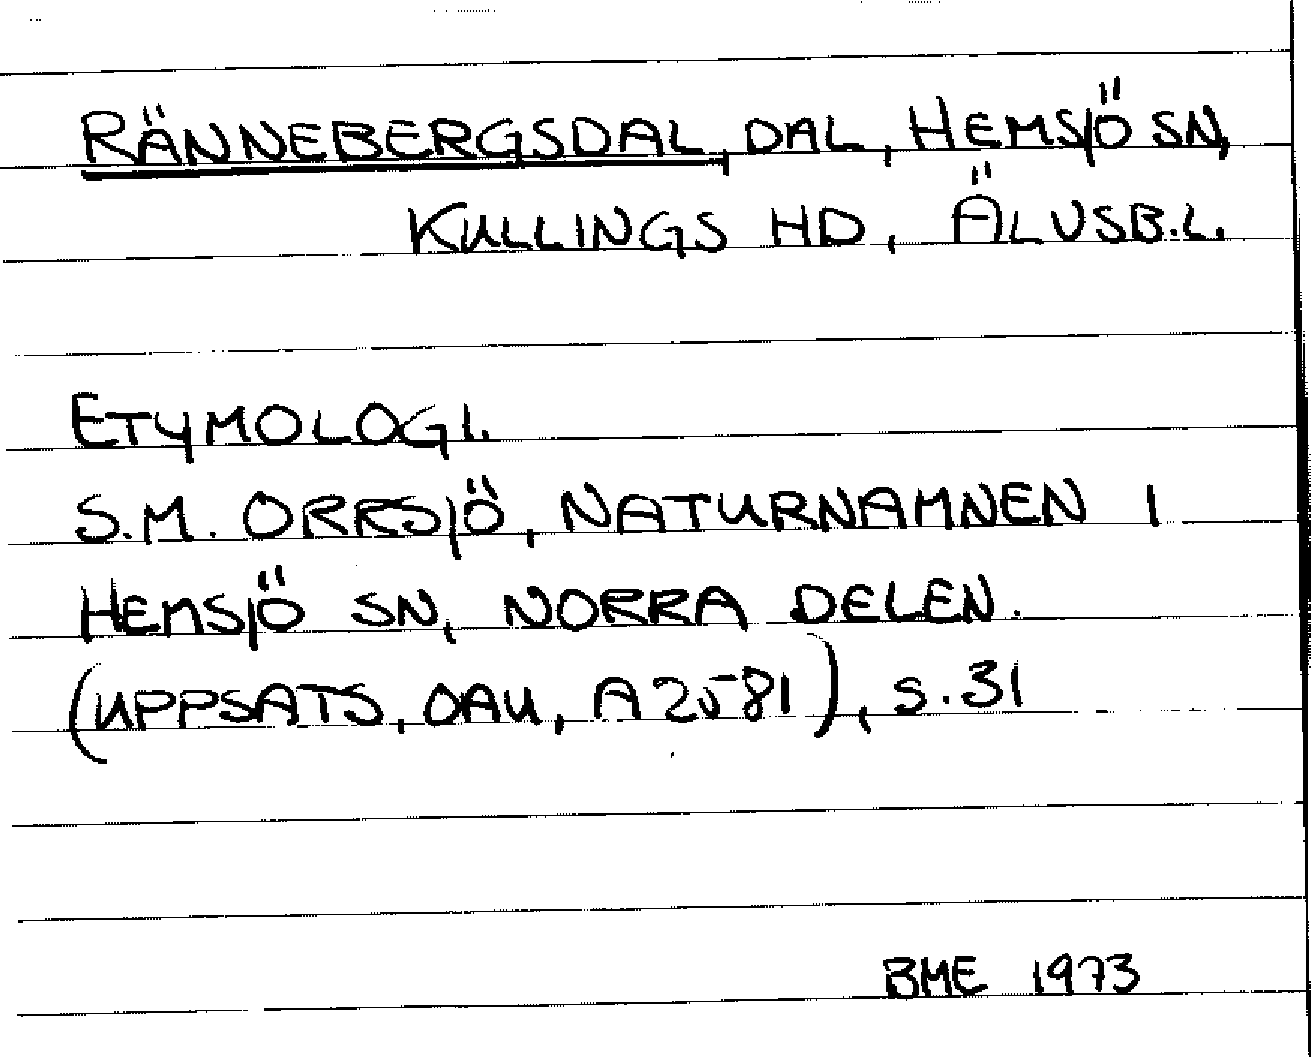 RÄNNEBERGSDAL, DAL, HEMSJÖ SN,
KULLINGS HD, ÄLVSB.L.
ETYMOLOGI.
S.M. ORRSJÖ, NATURNAMNEN I
HEMSJÖ SN, NORRA DELEN.
(UPPSATS, OAU, A2581), S.31
BME 1973